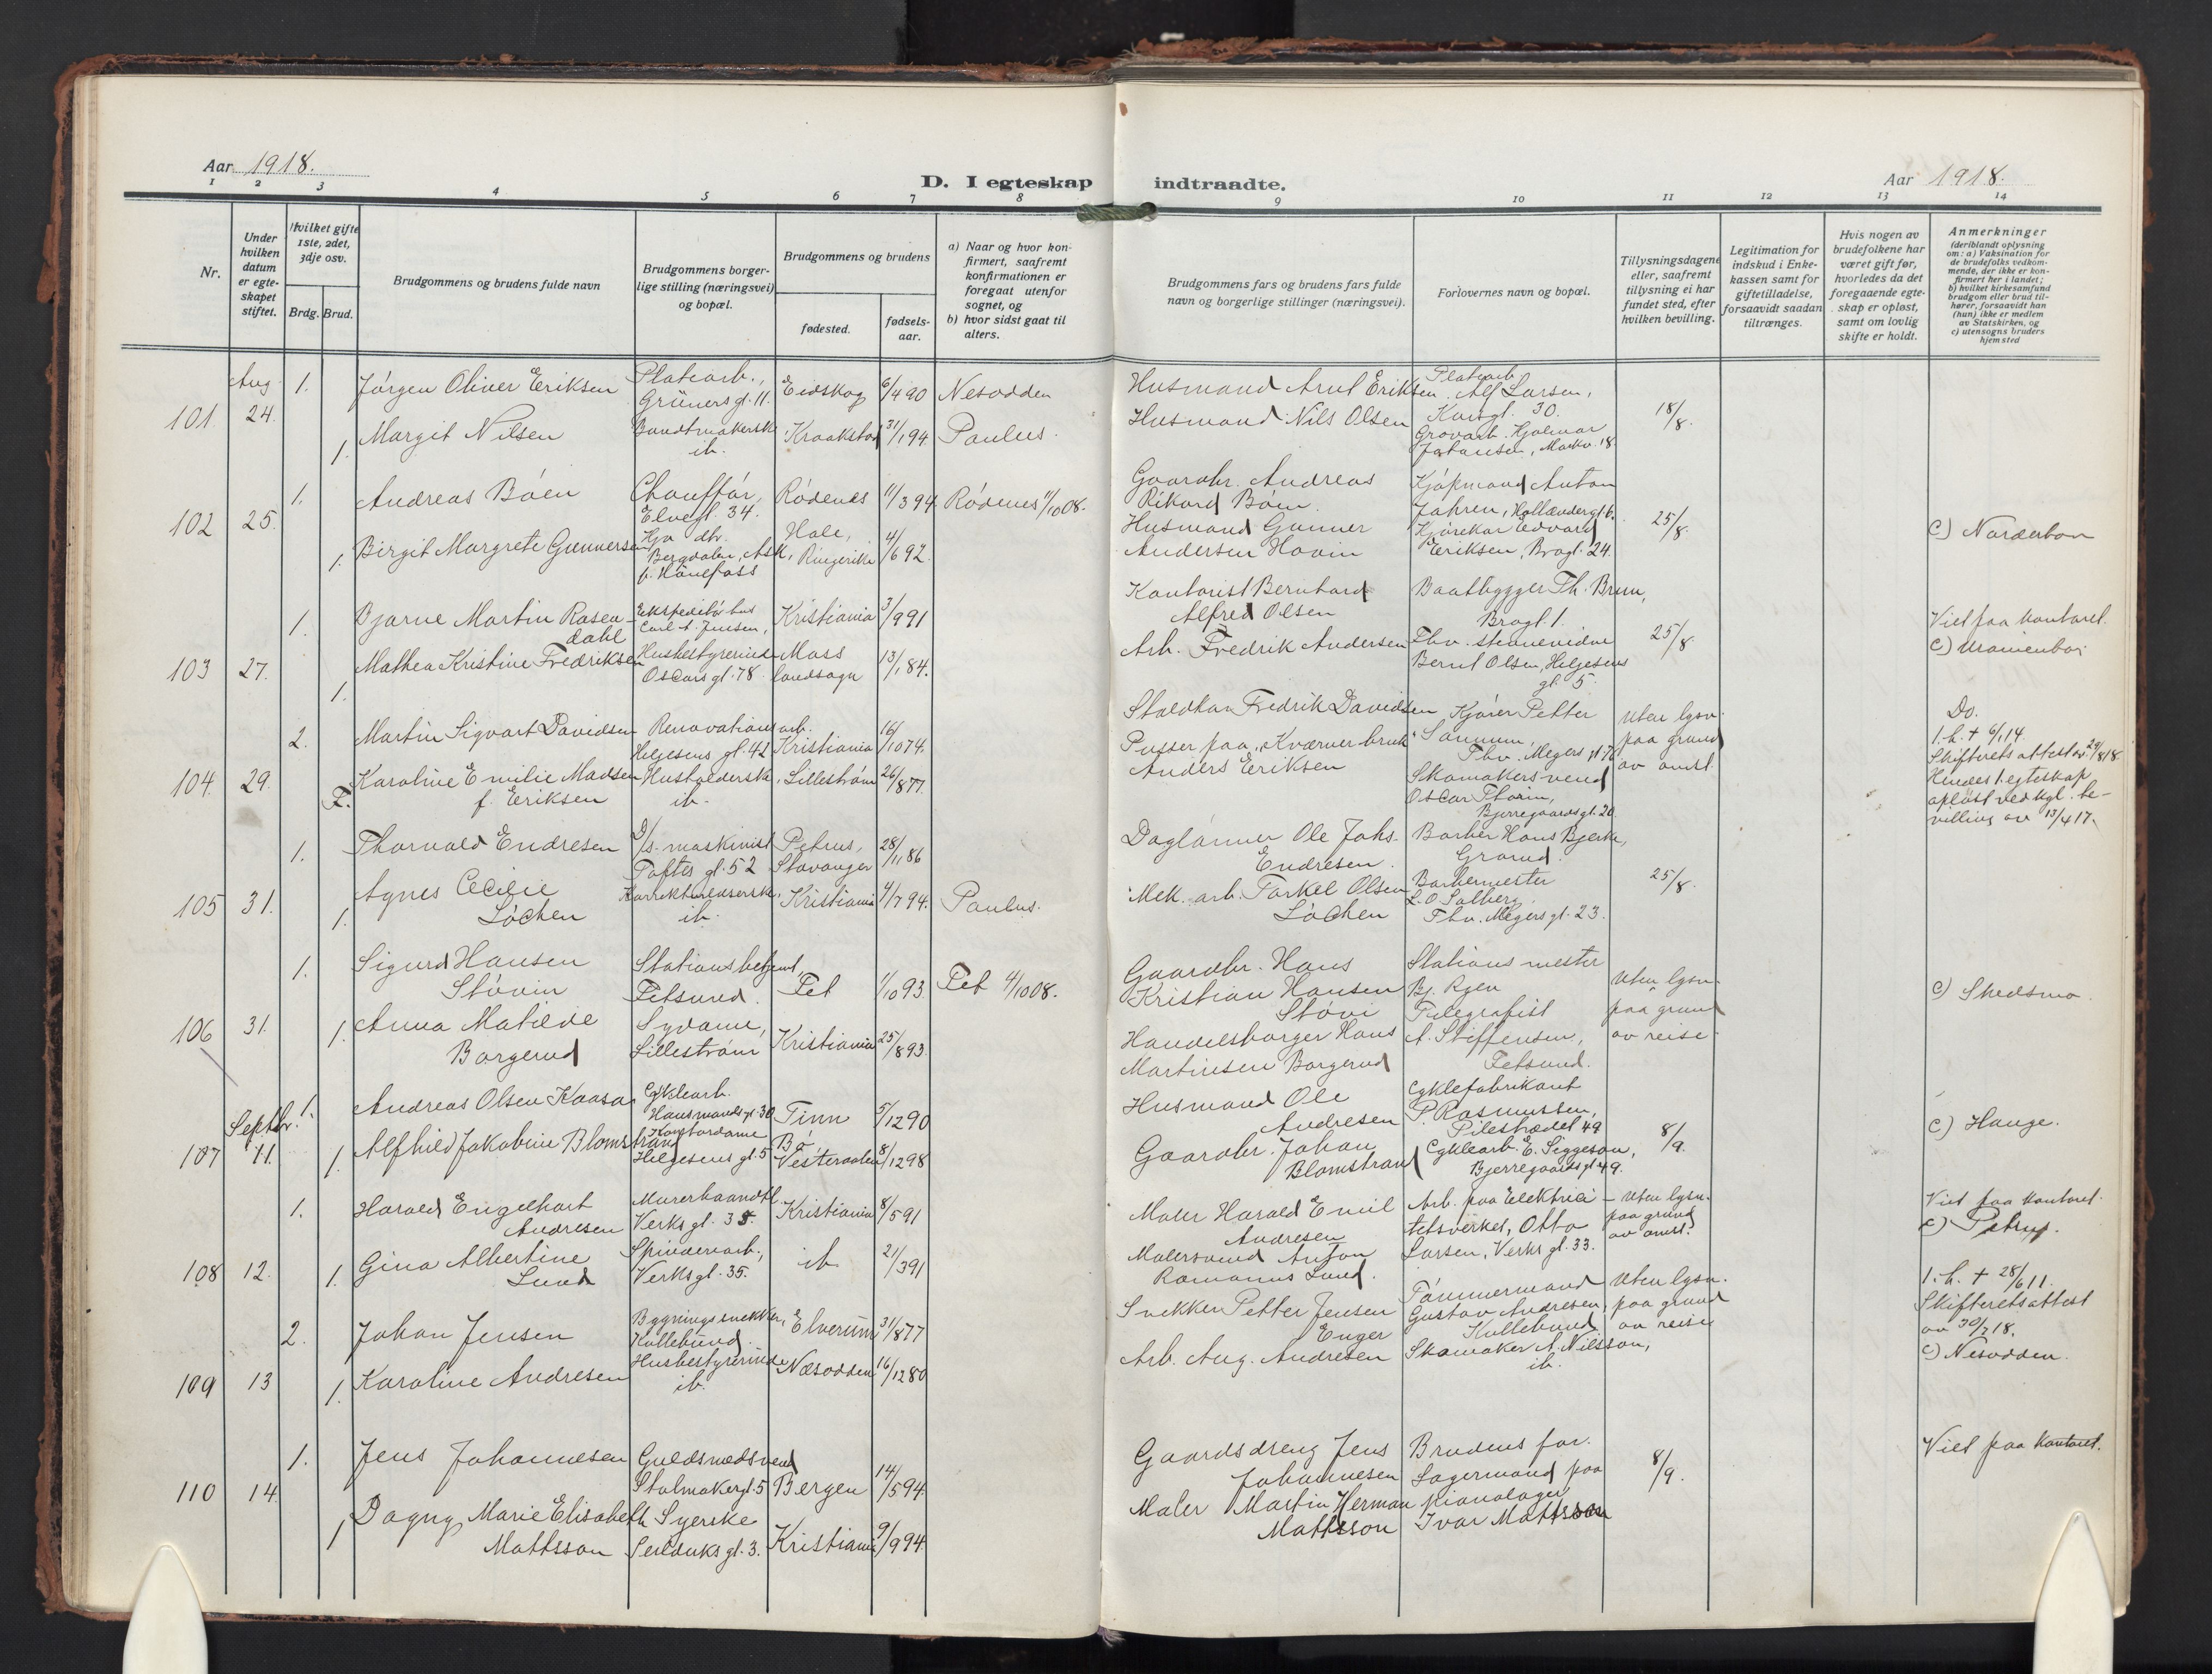 Aar 1918.
D. I egteskap indtraadte.
Aar 1918.
1 2 3 4 5 6 7 8 9 10 11 12 13 14
Nr.
Under hvilken datum er egteskapet stiftet.
Hvilket gifte 1ste, 2det, 3dje osv.
Brdg. Brud.
Brudgommens og brudens fulde navn
Brudgommens borgerlige stilling (næringsvei) og bopæl.
Brudgommens og brudens
fødested.
fødselsaar.
a) Naar og hvor konfirmert, saafremt konfirmationen er foregaat utenfor sognet, og
b) hvor sidst gaat til alters.
Brudgommens fars og brudens fars fulde navn og borgerlige stillinger (næringsvei).
Forlovernes navn og bopæl.
Tillysningsdagene eller, saafremt tillysning ei har fundet sted, efter hvilken bevilling.
Legitimation for indskud i Enkekassen samt for giftetilladelse, forsaavidt saadan tiltrænges.
Hvis nogen av brudefolkene har været gift før, hvorledes da det foregaaende egteskap er opløst, samt om lovlig skifte er holdt.
Anmerkninger
(deriblandt oplysning om: a) Vaksination for de brudefolks vedkommende, der ikke er konfirmert her i landet; b) hvilket kirkesamfund brudgom eller brud tilhører, forsaavidt han (hun) ikke er medlem av Statskirken, og c) utensogns bruders hjemsted
101 Aug. 24. 1. Jørgen Oliver Eriksen Platearb., Grüners gt. 11. Eidskog 6/4 90 Nesodden
Husmand Arnt Eriksen Platearb. Alf Larsen, Korsgt. 30. 18/8.
1. Margit Nilsen ib. Kraakstad 31/1 94. Paulus.
Husmand Nils Olsen Grovarb. Hjalmar Johansen, Markv. 18.
102 25. 1. Andreas Böen Chauffør, Elvegt. 34. Rödenes 11/3 94. Rödenes 11/10 08.
Gaardbr. Andreas Rikard Böen Kjøpmand Anton Jahren, Hollændergt. 6. 25/8.
1. Birgit Margrete Gunnersen Hja dtr. Bergdalen, Ask, p. Hönefoss Hole, Ringerike 4/6 92.
Husmand Gunner Andersen Hovin Kjørekar Edvard Eriksen, Brogt. 24. C) Norderhov
103 27. 1. Bjarne Martin Rosendahl Ekspeditör hos Carl A. Jensen, Kristiania 3/9 91
Kontorist Bernhard Alfred Olsen Baatbygger Th. Brun, Brogt. 1. 25/8
Viet paa kontoret.
C) Uranienborg
1. Mathea Kristine Fredriksen Husbestyrerinde Oscars gt. 78. Moss landsogn 13/1 84.
Arb. Fredrik Andersen Thv. Bernt Olsen, Helgesens gt. 5.
104. 29. 2. Martin Sigvart Davidsen Renovationsarb. Helgesens gt. 42 Kristiania 16/10 74.
Staldkar Fredrik Davidsen Kjører Petter Thv. Meyers gt. 76 Uten lysn. paa grund av omst.
Do.
1. h. † 6/1 14
Skifterets attest av 29/8 18.
Hendes 1. egteskap opløst ved kgl. bevilling av 13/4 17.
F. Karoline Emilie Madsen f. Eriksen Husholderske, ib. Lillestrøm 26/8 77.
Pusser paa "Kværner bruk" Anders Eriksen Skomakersvend Oscar Thorin, Bjerregaards gt. 20.
105 31. 1. Thorvald Endresen D/s. maskinist Toftes gt. 52 Petrus, Stavanger 28/11 86
Daglønner Ole Johs. Endresen. Barber Hans Bjerke, Grorud. 25/8.
1. Agnes Cecilie Löchen Korrekturleserske, ib. Kristiania 4/7 94. Paulus.
Mek. arb. Torkel Olsen Löchen Barbermester L. O. Solberg, Thv. Meyers gt. 23.
106 31. 1. Sigurd Hansen Stövin Stationsbetjent, Fetsund. Fet 1/10 93. Fet 4/10 08.
Gaardbr. Hans Kristian Hansen Stövi Stationsmester Bj. Ryen Uten lysn. paa grund av reise.
C) Skedsmo.
1. Anna Matilde Borgerud Sydame, Lillestrøm Kristiania 25/8 93.
Handelsborger Hans Martinsen Borgerud Telegrafist A. Steffensen, Fetsund.
107 Septbr. 11. 1. Andreas Olsen Kaasa Cyklearb. Hausmandsgt. 30 Tinn 5/12 90
Husmand Ole Andresen Cyklefabrikant P. Rasmussen, Pilestrædet 49 8/9.
C) Hauge.
1. Alfhild Jakobine Blomstrand Kontordame Helgesens gt. 5 Bö Vesteraalen 8/12 98
Gaardbr. Johan Blomstrand Cyklearb. E. Siggeson, Bjerregaards gt. 49.
108 12. 1. Harald Engelhart Andresen Murerhaandtl. Verks gt. 35. Kristiania 8/5 91
Maler Harald Emil Andresen Arb. paa Elektricitetsverket, Otto Larsen, Verks gt. 33. Uten lysn. paa grund av omst.
Viet paa kontoret.
C) Petrus.
1. Gina Albertine Lund Spinderarb., Verks gt. 35. ib. 21/3 91
Malersvend Anton Romanus Lund.
109 13 2. Johan Jensen Bygningssnekker, Kullebund. Elverum 31/8 77
Snekker Petter Jensen Enger Tømmermand Gustav Andresen, Kullebund. Uten lysn. paa grund av reise
1. h. † 28/6 11.
Skifteretsattest av 30/7 18.
C) Nesodden.
1. Karoline Andresen Husbestyrerinde ib. Næsodden 16/12 80
Arb. Aug. Andresen Skomaker A. Nilsson, ib.
110 14. 1. Jens Johannesen Guldsmedsvend Stolmakergt. 5 Bergen 14/5 94
Gaardsdreng Jens Johannesen Brudens far. 8/9.
Viet paa kontoret.
1 Dagny Marie Elisabeth Mattsson Syerske Seilduks gt. 3. Kristiania 9/9 94.
Maler Martin Herman Mattsson Lagermand paa Pianolager Ivar Mattsson